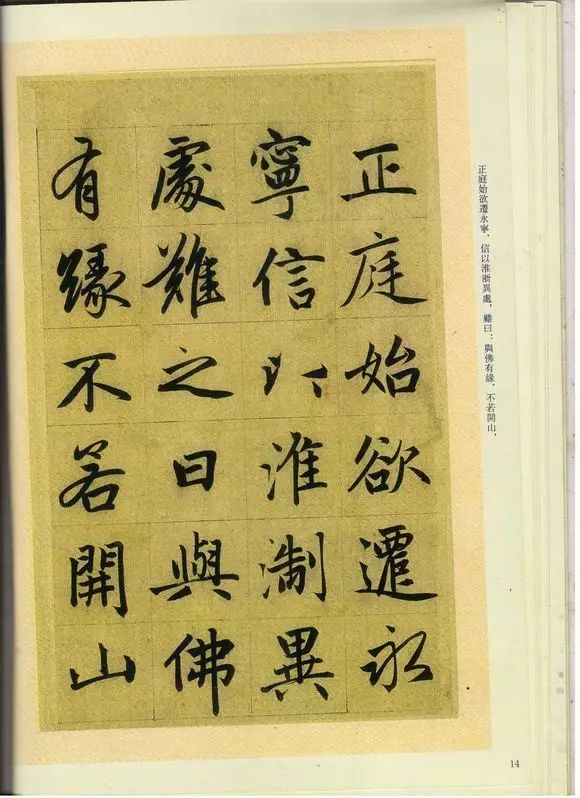 正庭始欲遷永寧，信以淮浙異處，難曰：與佛有緣，不若開山，
正庭始欲遷永
寧信以淮淛異
處難之曰與佛
有緣不若開山
14